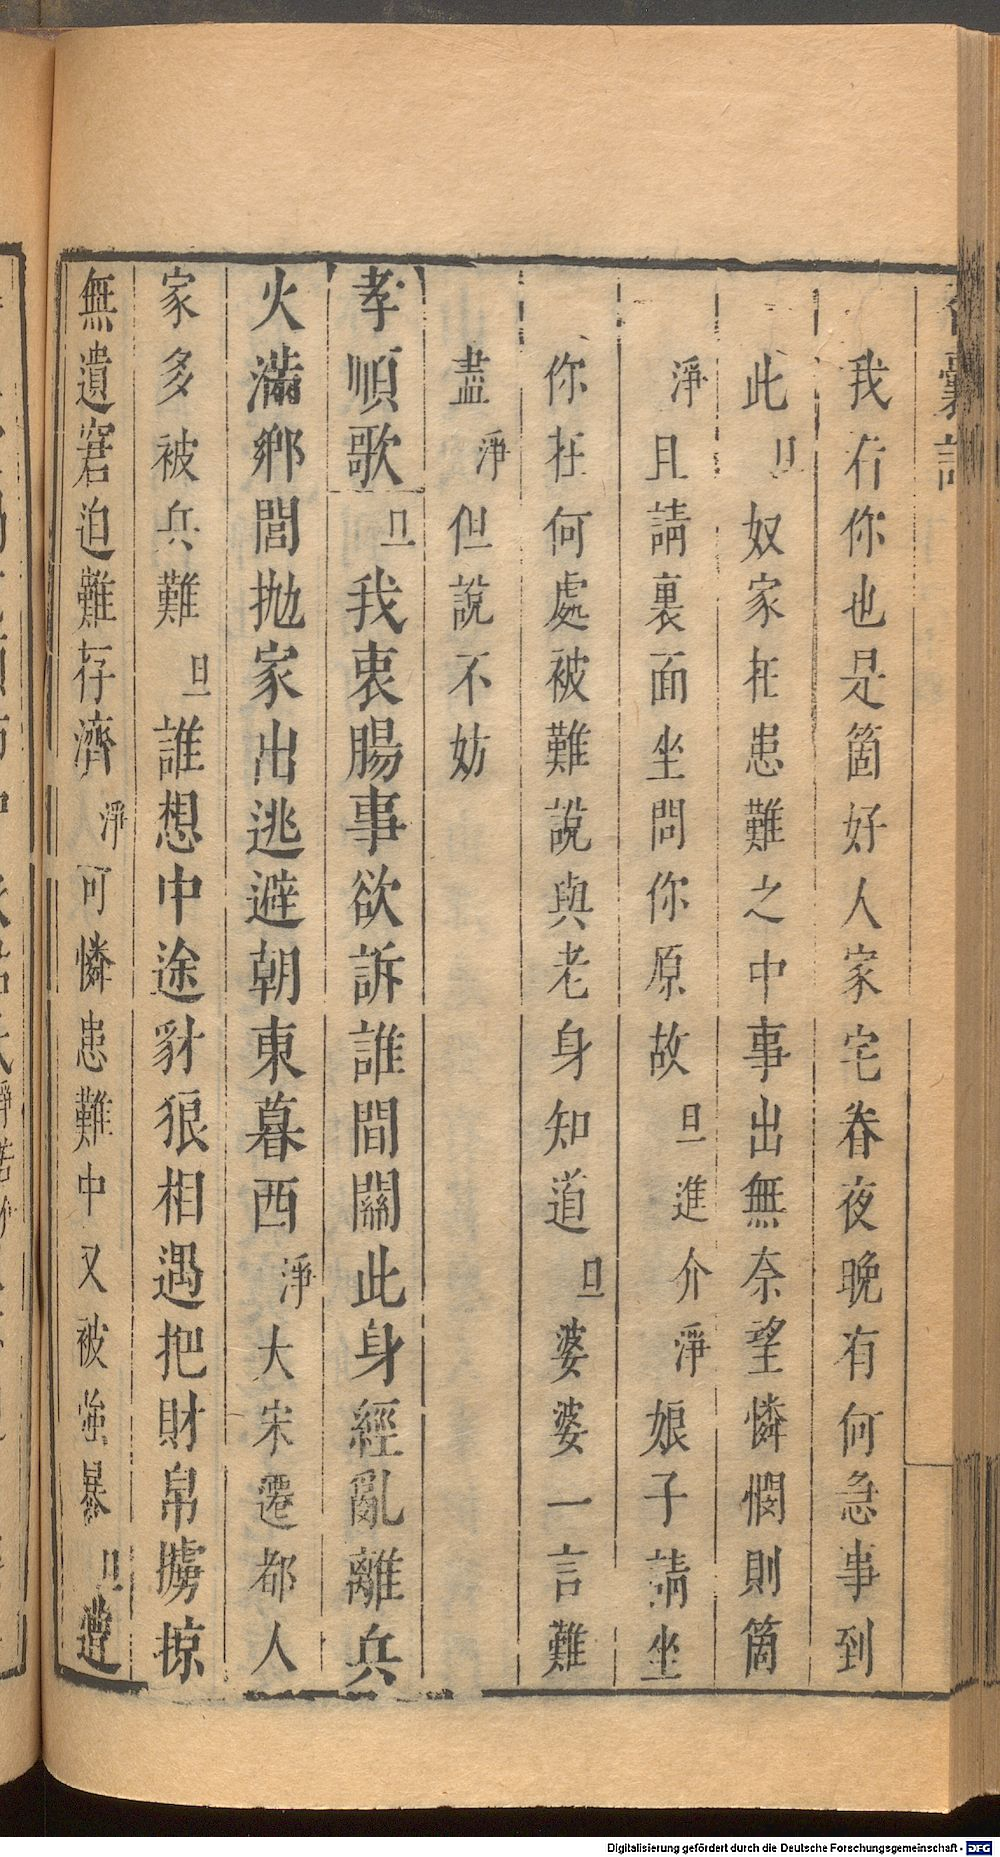 香囊記
我看你也是箇好人家宅眷夜晚有何急事到
此旦奴家在患難之中事出無奈望憐憫則箇
淨且請裏面坐問你原故旦進介淨娘子請坐
你在何處被難說與老身知道旦婆婆一言難
盡淨但說不妨
孝順歌旦我衷腸事欲訴誰間關此身經亂離兵
火滿鄉閭拋家出逃避朝東暮西淨大宋遷都人
家多被兵難旦誰想中途豺狼相遇把財帛擄掠
無遺窘迫難存濟淨可憐患難中又被強暴旦遭
Digitalisierung gefördert durch die Deutsche Forschungsgemeinschaft - DFG